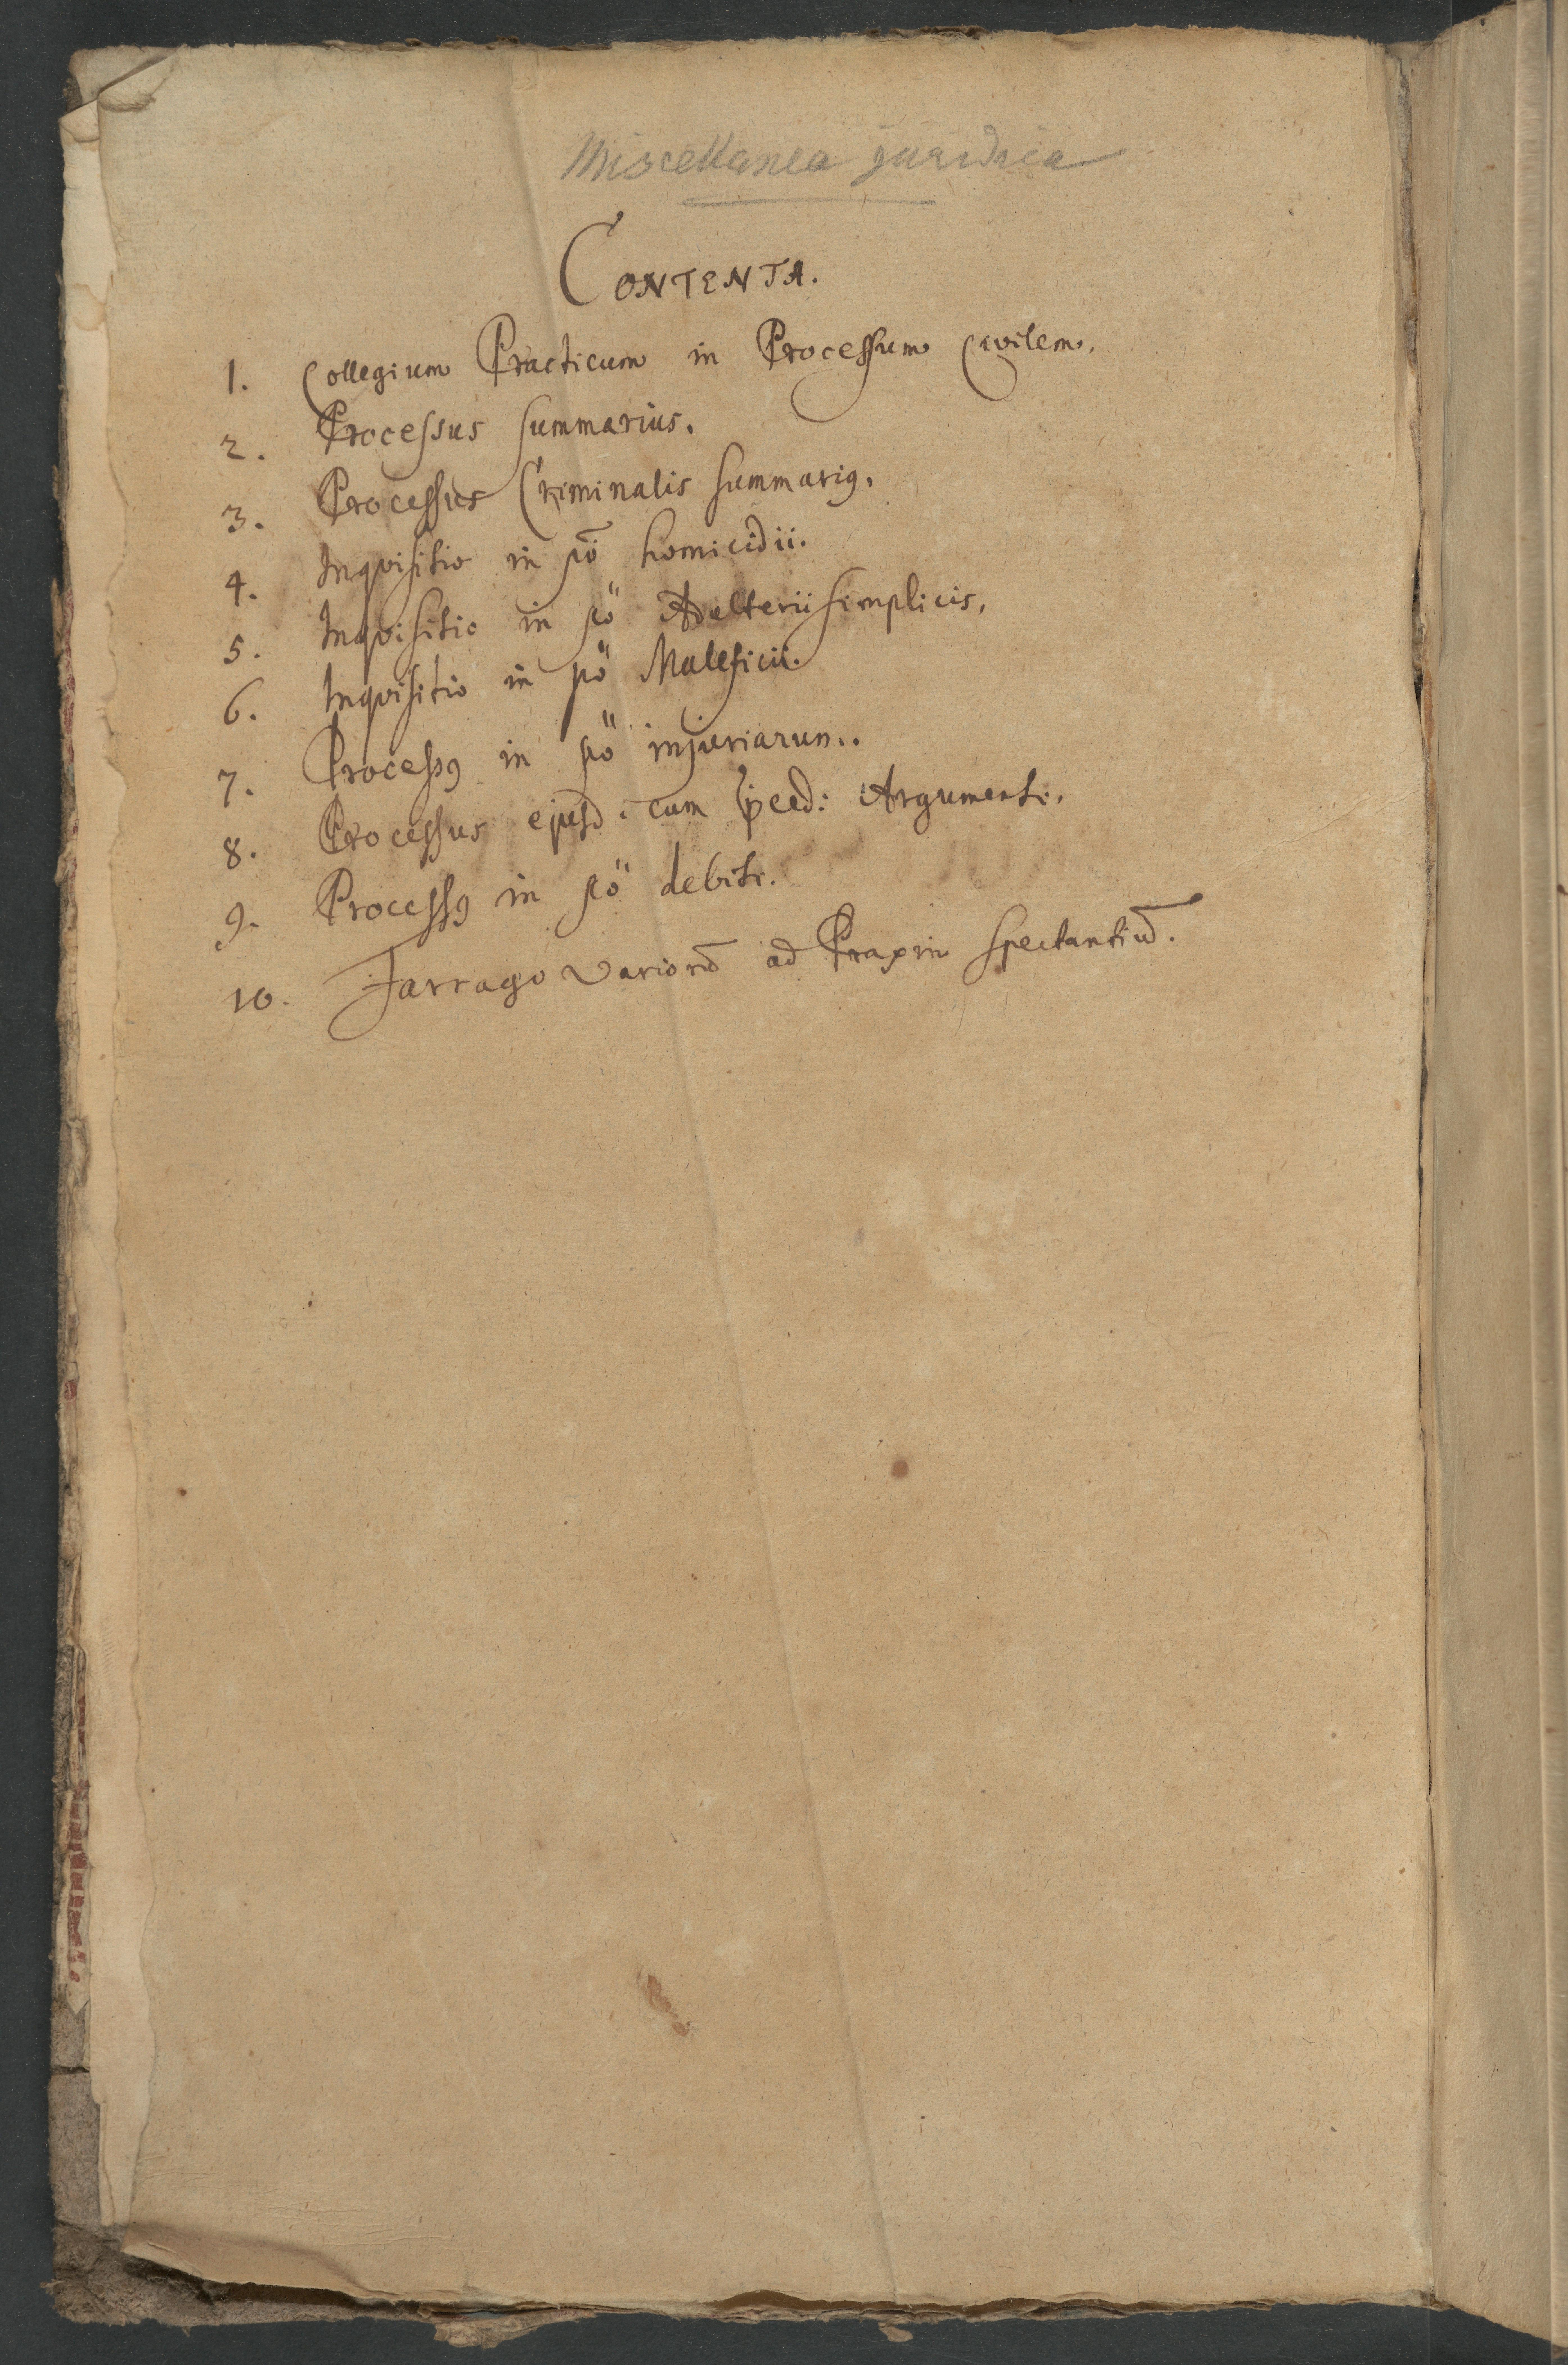 Miscellanea juridica
CONTENTA.
1. Collegium Practicum in Processum Civilem.
2. Processus summarius.
3. Processus Criminalis summariꝰ.
4. Inqvisitio in pō homicidii.
5. Inqvisitio in pö Adelterii simplicis.
6. Inqvisitio in pö Maleficii.
7. Processꝰ in pö injuriarum.
8. Processus ejusd. cum Argumenti.
9. Processꝰ in pö debiti.
10. Farrago variorū ad Praxin spectantiū.